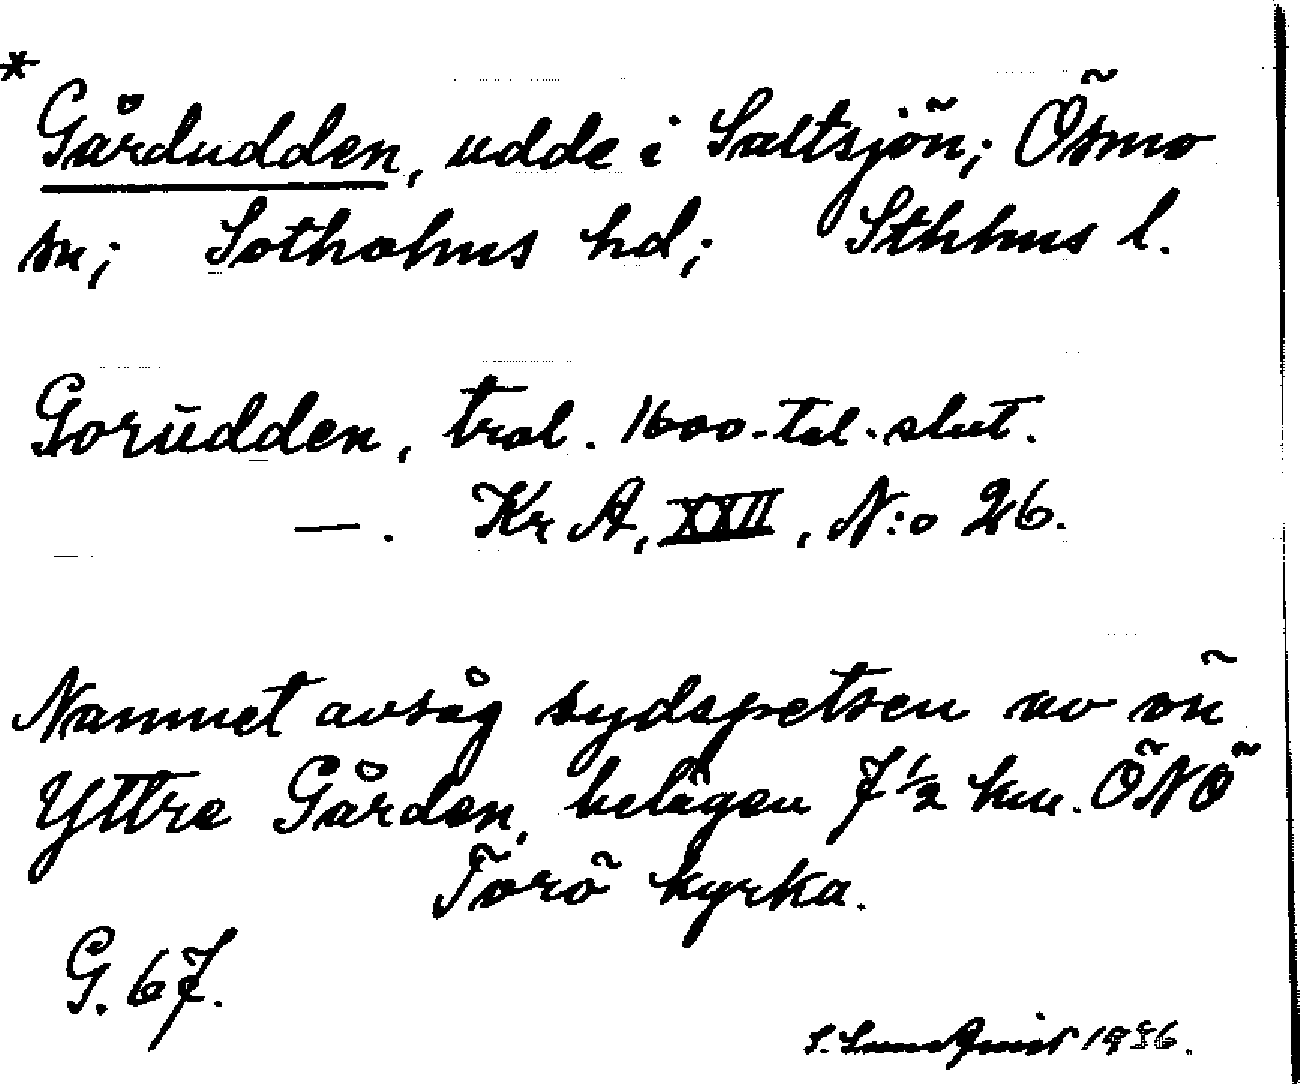 * Gårdudden, udde i Saltsjön; Ösmo
sn; Sotholms hd; Sthlms l.
Gorudden, trol. 1600-tal. slut.
—. Kr A, XXII, N:o 26.
Namnet avsåg sydspetsen av ön
Yttre Gården, belägen 7 ½ km. ÖNÖ
Torö kyrka.
G. 67.
S. Lundqvist 1936.